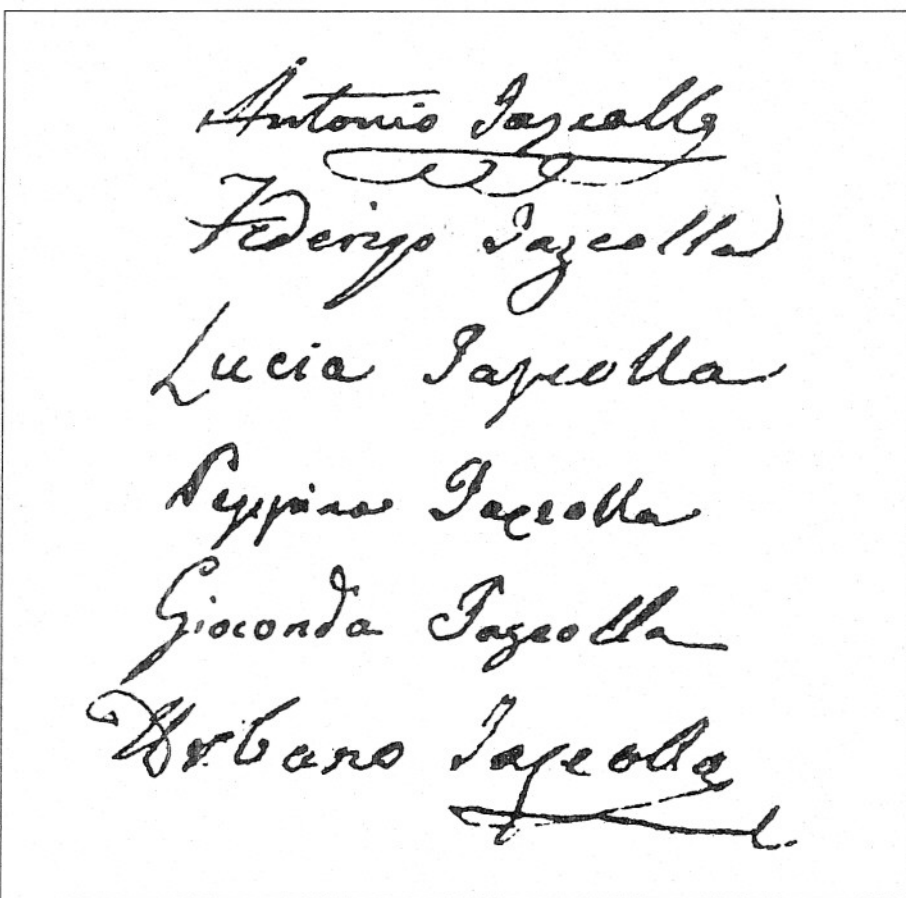 Antonio Iazeolla
Federigo Iazeolla
Lucia Iazeolla
Peppino Iazeolla
Gioconda Iazeolla
Urbano Iazeolla